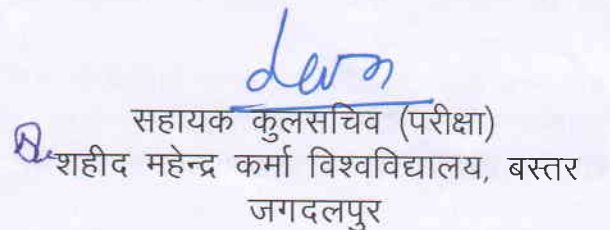 सहायक कुलसचिव (परीक्षा)
शहीद महेन्द्र कर्मा विश्वविद्यालय, बस्तर
जगदलपुर